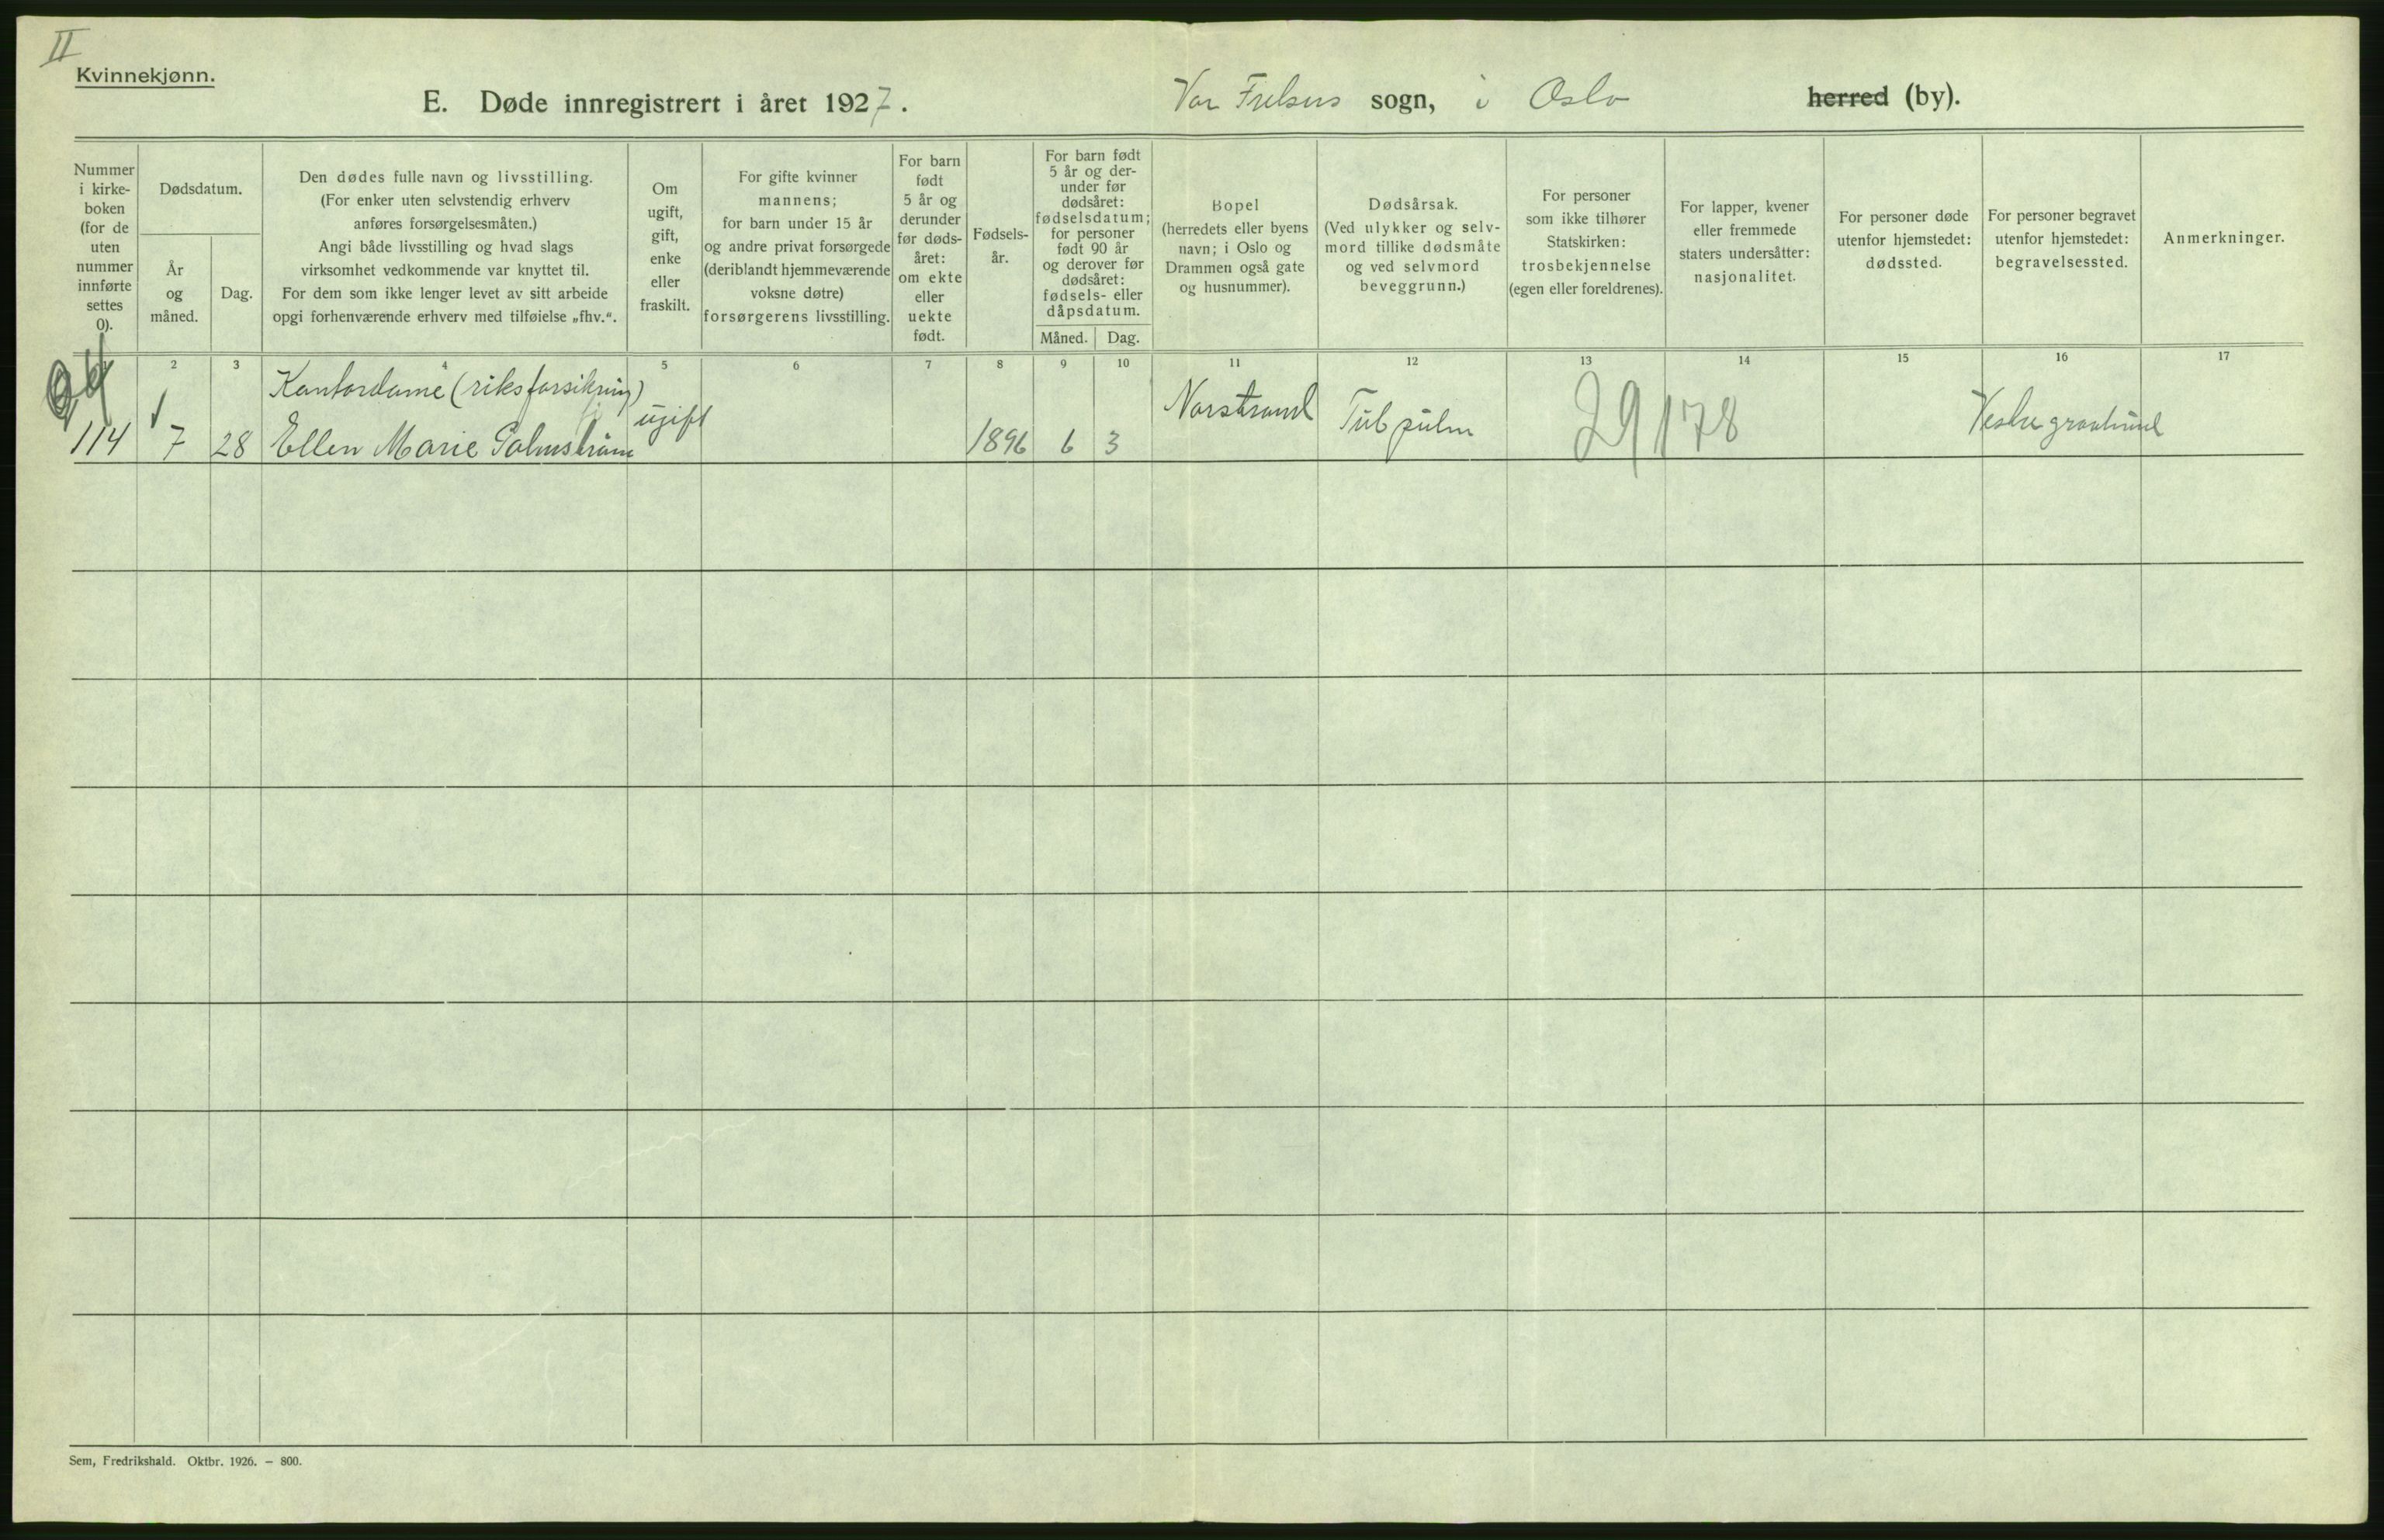 II
Kvinnekjønn.
E. Døde innregistrert i året 1927.
Vor Frelsers sogn, i Oslo herred (by).
Nummer i kirke-boken (for de uten nummer innførte settes 0).
Dødsdatum.
År og måned.
Dag.
Den dødes fulle navn og livsstilling.
(For enker uten selvstendig erhverv
anføres forsørgelsesmåten.)
Angi både livsstilling og hvad slags
virksomhet vedkommende var knyttet til.
For dem som ikke lenger levet av sitt arbeide
opgi forhenværende erhverv med tilføielse „fhv.“.
Om
ugift,
gift,
enke
eller
fraskilt.
For gifte kvinner
mannens;
for barn under 15 år
og andre privat forsørgede
(deriblandt hjemmeværende
voksne døtre)
forsørgerens livsstilling.
For barn
født
5 år og
derunder
før døds-
året:
om ekte
eller
uekte
født.
Fødsels-
år.
For barn født
5 år og der-
under før
dødsåret:
fødselsdatum;
for personer
født 90 år
og derover før
dødsåret:
fødsels- eller
dåpsdatum.
Måned. Dag.
Bopel
(herredets eller byens
navn; i Oslo og
Drammen også gate
og husnummer).
Dødsårsak.
(Ved ulykker og selv-
mord tillike dødsmåte
og ved selvmord
beveggrunn.)
For personer
som ikke tilhører
Statskirken:
trosbekjennelse
(egen eller foreldrenes).
For lapper, kvener
eller fremmede
staters undersåtter:
nasjonalitet.
For personer døde
utenfor hjemstedet:
dødssted.
For personer begravet
utenfor hjemstedet:
begravelsessted.
Anmerkninger.
2 3 4 5 6 7 8 9 10 11 12 13 14 15 16 17
Kontordame (riksforsikring)
114 7 28 Ellen Marie Palmstrøm ugift 1896 6 3 Norstrand Tub pulm 29178 Vestre gravlund
Sem, Fredrikshald. Oktbr. 1926. — 800.